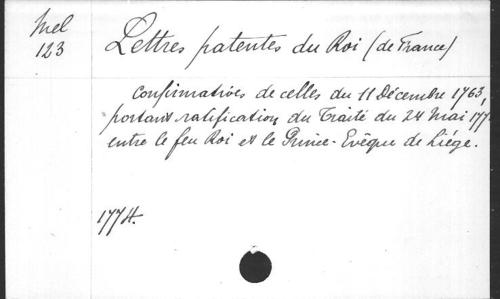 Mel
123
Lettres patentes du Roi (de France)
confirmatives de celles du 11 Décembre 1763,
portant ratification du Traité du 24 Mai
entre le feu Roi et le Prince-Evêque de Liége.
1774.